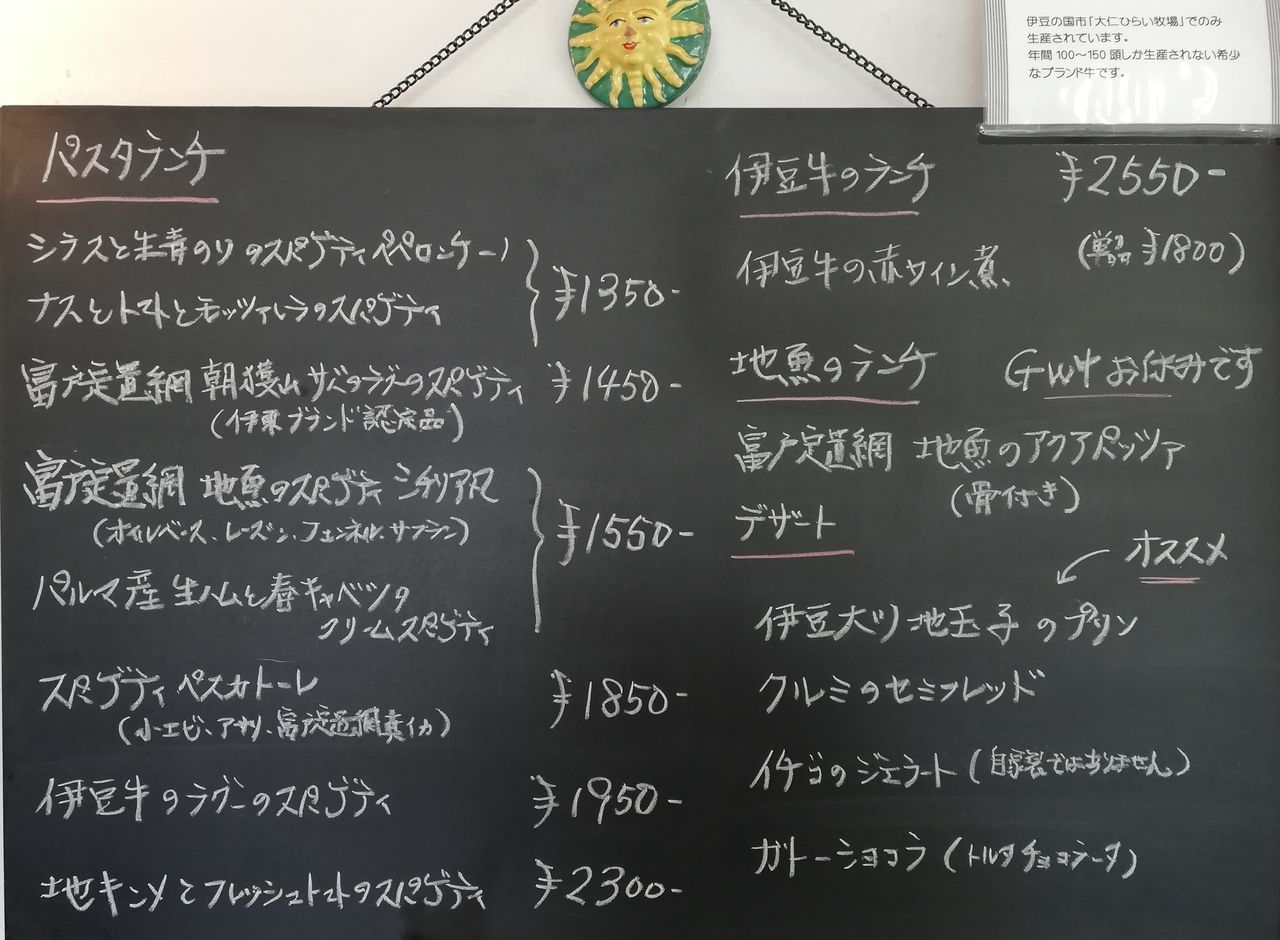 伊豆の国市「大仁ひらい牧場」でのみ
生産されています。
年間100～150頭しか生産されない希少
なブランド牛です。
パスタランチ
シラスと生青のりのスパゲティペペロンチーノ
ナスとトマトとモッツァレラのスパゲティ
¥1350-
富戸定置網 朝獲れサバのラグーのスパゲティ ¥1450-
(伊東ブランド認定品)
富戸定置網 地魚のスパゲティ シチリア風
(オイルベース、レーズン、フェンネル、サフラン)
¥1550-
パルマ産生ハムと春キャベツの
クリームスパゲティ
スパゲティ ペスカトーレ ¥1850-
(小エビ、アサリ、富戸定置網真イカ)
伊豆牛のラグーのスパゲティ ¥1950-
地キンメとフレッシュトマトのスパゲティ ¥2300-
伊豆牛のランチ ¥2550-
(単品 ¥1800)
伊豆牛の赤ワイン煮
地魚のランチ GW中お休みです
富戸定置網 地魚のアクアパッツァ
(骨付き)
デザート
オススメ
伊豆大川地玉子のプリン
クルミのセミフレッド
イチゴのジェラート (自家製ではありません)
ガトーショコラ (トルタチョコラータ)